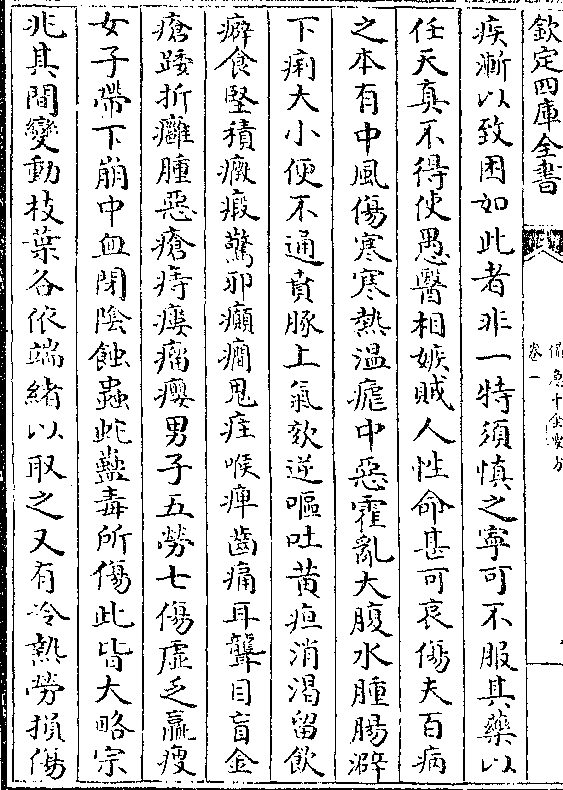 欽定四庫全書
備急千金要方
卷一
疾漸以致困如此者非一特須慎之寧可不服其藥以
任天真不得使愚醫相嫉賊人性命甚可哀傷夫百病
之本有中風傷寒寒熱溫瘧中惡霍亂大腹水腫腸澼
下痢大小便不通賁豚上氣欬逆嘔吐黄疸消渴留飲
癖食堅積癥瘕驚邪癲癎鬼疰喉痺齒痛耳聾目盲金
瘡踒折癰腫惡瘡痔瘻瘤癭男子五勞七傷虛乏羸瘦
女子帶下崩中血閉陰蝕蟲蛇蠱毒所傷此皆大略宗
兆其間變動枝葉各依端緒以取之又有冷熱勞損傷